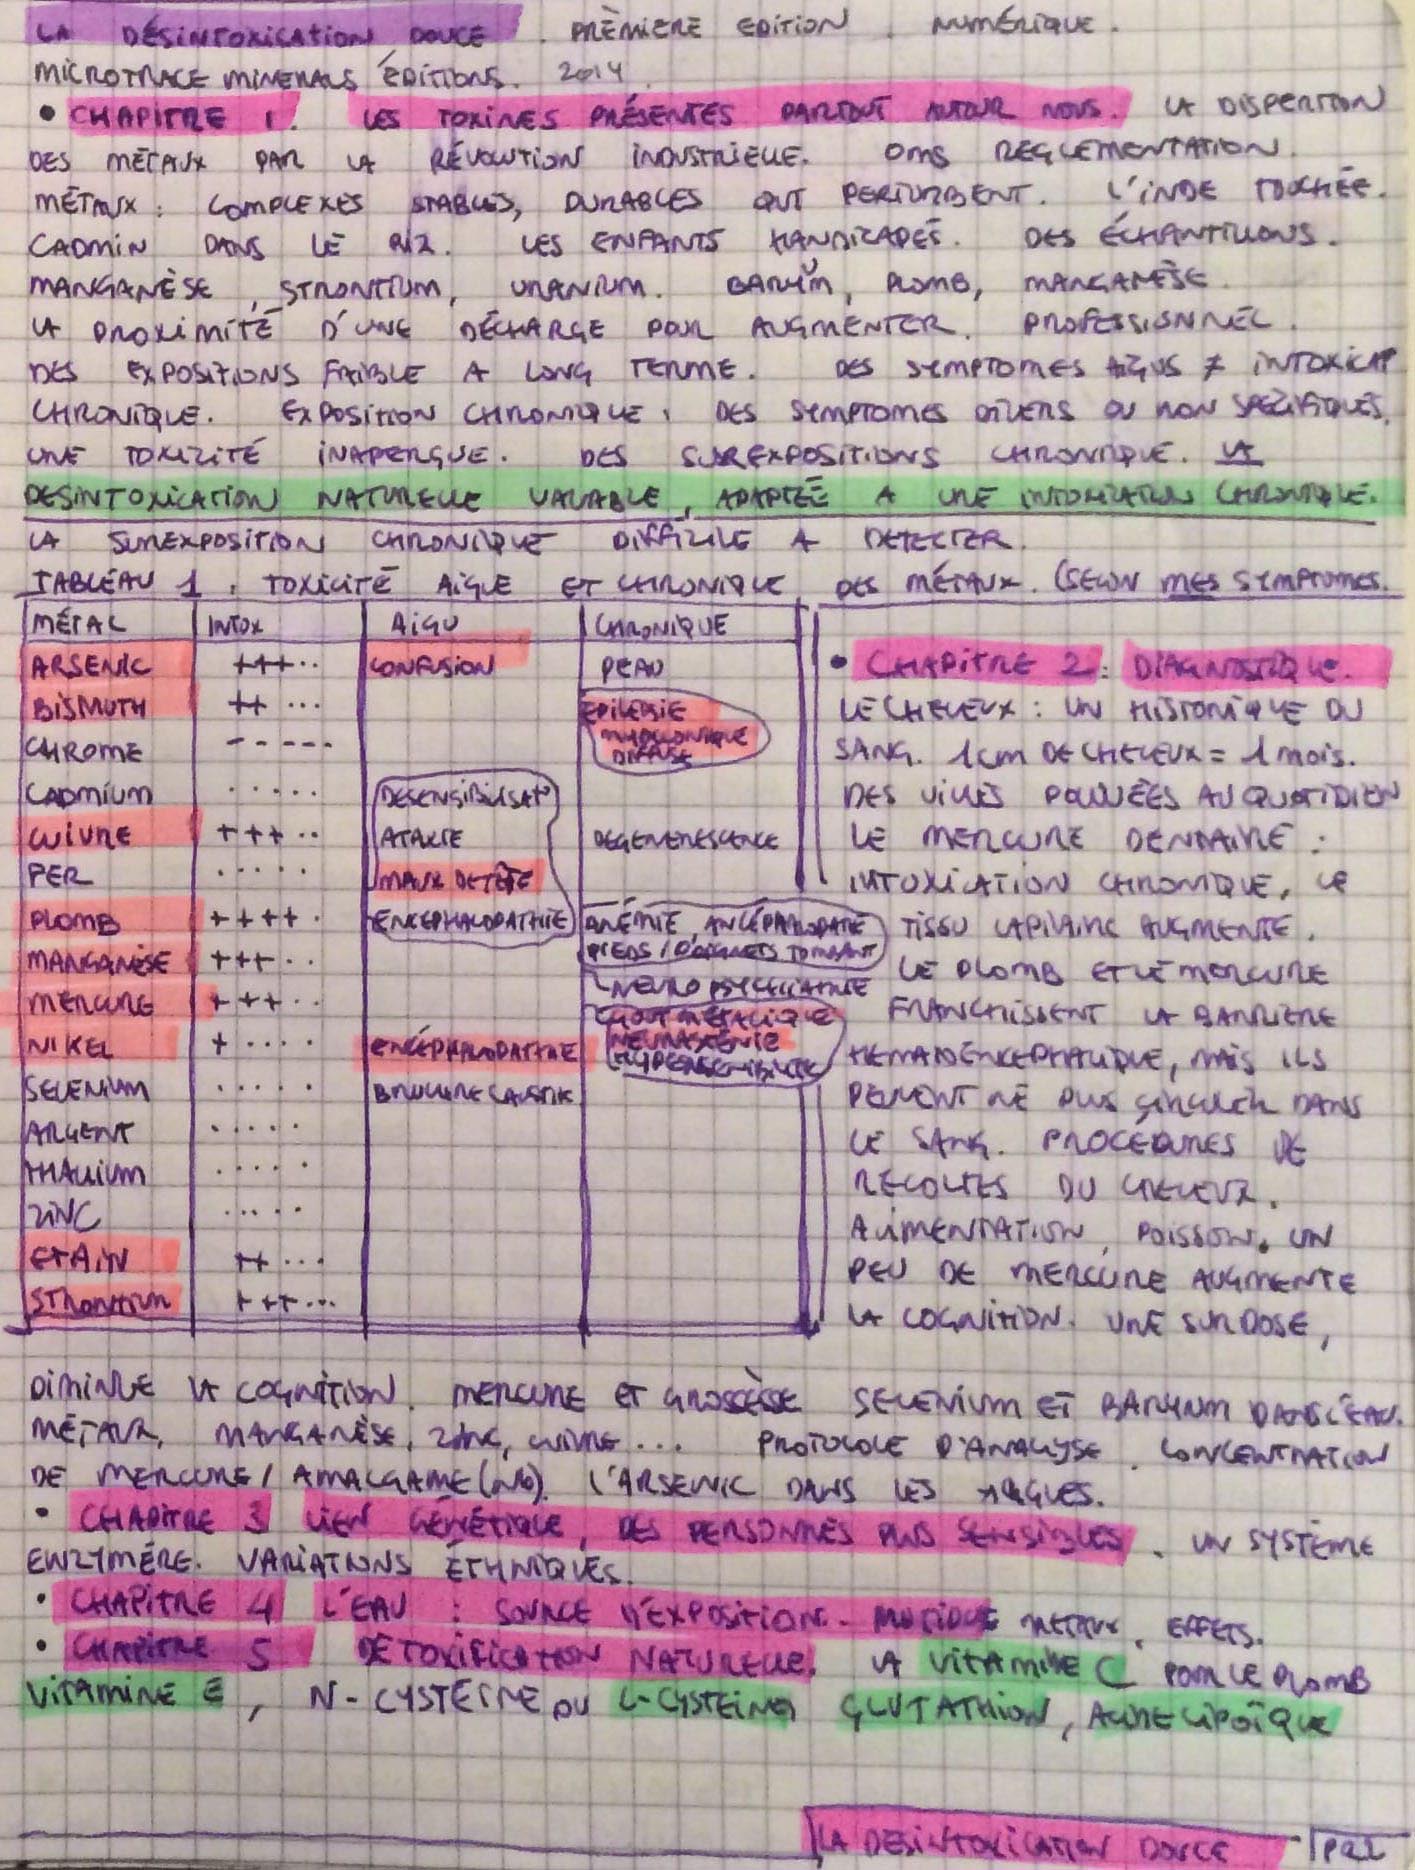 LA DÉSINTOXICATION DOUCE . PRÈMIERE EDITION . NUMÉRIQUE .
MICROTRACE MINERALS ÉDITIONS. 2014.
• CHAPITRE 1. LES TOXINES PRÉSENTES PARTOUT AUTOUR NOUS. LA DISPERTION
DES MÉTAUX PAR LA RÉVOLUTION INDUSTRIELLE. OMS REGLEMENTATION.
MÉTAUX : COMPLEXES STABLES, DURABLES QUI PERTURBENT. L'INDE TOUCHÉE.
CADMIN DANS LE RIZ. LES ENFANTS HANDICAPÉS. DES ÉCHANTILLONS.
MANGANÈSE, STRONTIUM, URANIUM. BARYUM, PLOMB, MANGANÈSE.
LA PROXIMITÉ D'UNE DÉCHARGE POUR AUGMENTER. PROFESSIONNEL.
DES EXPOSITIONS FAIBLE A LONG TERME. DES SYMPTOMES AIGUS ≠ INTOXICAT°
CHRONIQUE. EXPOSITION CHRONIQUE : DES SYMPTOMES DIVERS OU NON SPÉCIFIQUES.
UNE TOXICITÉ INAPERÇUE. DES SUREXPOSITIONS CHRONIQUE. LA
DESINTOXICATION NATURELLE VALABLE, ADAPTÉE A UNE INTOXICATION CHRONIQUE.
LA SUREXPOSITION CHRONIQUE DIFFICILE A DETECTER.
TABLEAU 1 : TOXICITÉ AIGUE ET CHRONIQUE DES MÉTAUX. (SELON MES SYMPTOMES.
MÉTAL INTOX AIGU CHRONIQUE
ARSENIC +++.. CONFUSION PEAU
BISMUTH ++ ... EPILEPSIE MYOCLONIQUE DIFFUSE
CHROME - - - - -
CADMIUM ..... DESENSIBILISAT°
CUIVRE +++.. ATAXIE DEGENERESCENCE
FER ..... MAUX DE TÊTE
PLOMB ++++. ENCEPHALOPATHIE ANÉMIE, ANCÉPHALOPATIE
PIEDS / POIGNETS TOMBANT
MANGANÈSE +++.. NEUROPSYCHIATRIE
MERCURE +++.. GOUT MÉTALLIQUE
NIKEL +.... ENCÉPHALOPATHIE NEURASTÉNIE
HYPERSENSIBILITÉ
SELENIUM ..... BRULURE CAUSTIK
ARGENT .....
THALIUM .....
ZINC .....
ETAIN ++...
STRONTIUM +++...
• CHAPITRE 2 : DIAGNOSTIQUE.
LE CHEVEUX : UN HISTORIQUE DU
SANG. 1 CM DE CHEVEUX = 1 MOIS.
DES VILLES POLLUÉES AU QUOTIDIEN
LE MERCURE DENTAIRE :
INTOXICATION CHRONIQUE, LE
TISSU CAPILAIRE AUGMENTE.
LE PLOMB ET LE MERCURE
FRANCHISSENT LA BARRIERE
HEMATOENCEPHALIQUE, MAIS ILS
PEUVENT NE PLUS CIRCULER DANS
LE SANG. PROCÉDURES DE
RECOLTES DU CHEVEUX.
ALIMENTATION, POISSON. UN
PEU DE MERCURE AUGMENTE
LA COGNITION. UNE SURDOSE,
DIMINUE LA COGNITION. MERCURE ET GROSSESSE SELENIUM ET BARYUM DANS L'EAU.
MÉTAUX, MANGANÈSE, ZINC, CUIVRE ... PROTOCOLE D'ANALYSE. CONCENTRATION
DE MERCURE / AMALGAME (NB). L'ARSENIC DANS LES ALGUES.
• CHAPITRE 3 LIEN GÉNÉTIQUE, DES PERSONNES PLUS SENSIBLES. UN SYSTÈME
ENZYMÉRE. VARIATIONS ÉTHNIQUES.
• CHAPITRE 4 L'EAU : SOURCE D'EXPOSITION. METAUX, EFFETS.
• CHAPITRE 5 DETOXIFICATION NATURELLE. LA VITAMINE C POUR LE PLOMB
VITAMINE E, N-CYSTEINE OU L-CYSTEINE, GLUTATHION, ACIDE LIPOÏQUE
LA DESINTOXICATION DOUCE